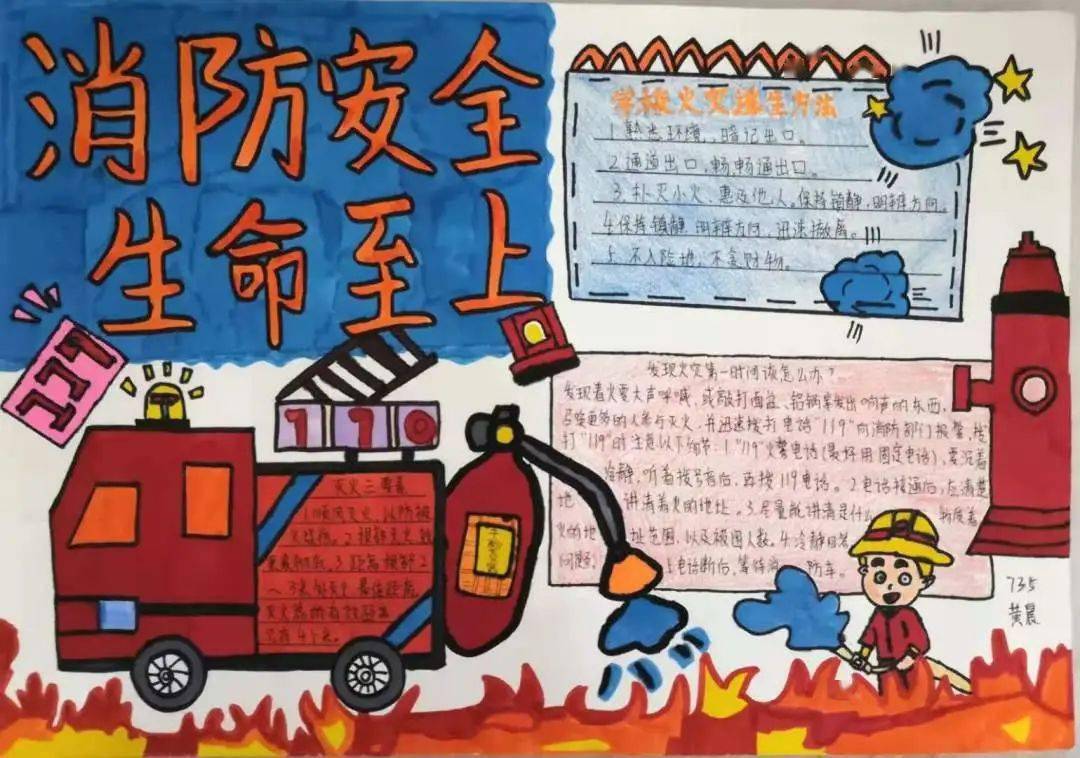 消防安全
生命至上
119
110
学校火灾逃生方法
1.熟悉环境,暗记出口。
2.通道出口,畅畅通出口。
3.扑灭小火、惠及他人。保持镇静,明辨方向。
4.保持镇静 明辨方向,迅速撤离。
5.不入险地,不贪财物。
发现火灾第一时间该怎么办?
发现着火要大声呼喊,或敲打面盆、铝锅等发出响声的东西,
召唤更多的人参与灭火,并迅速拨打电话"119"向消防部门报警,拨
打"119"时注意以下细节:1."119"火警电话(最好用固定电话),要沉着
冷静,听着拨号音后,再拨119电话。2.电话接通后,应清楚
地 讲清着火的地址。3.尽量能讲清是什么 物质着
火的地 址范围,以及被困人数。4.冷静回答
问题, 电话断后,等待消 防车。
灭火三要点
1.顺风灭火,以防被
火烧伤。2.根部灭火
3.距离根部2
~3米
灭火器的有效距离
只有4个米。
干粉灭火
735
黄晨